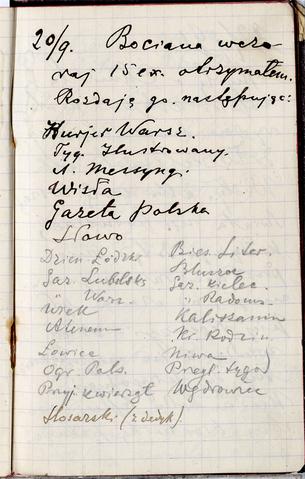 20/9. Bociana wczo
raj 15 ex. otrzymałem.
Rozdaję go następując:
Kurjer Warsz.
Tyg. Ilustrowany.
A. Messyng.
Wisła
Gazeta Polska
Słowo
Dzien Łódzki Bies. Liter.
Gaz. Lubelska Bluszcz
" Warsz. Gaz. Kielec.
Wiek " Radoms.
Ateneum Kaliszanin
Łowiec Kr. Rodzin
Ogr. Pols. Niwa
Przyj. zwierząt Przegl. tygod
Ślosarski (z dedyk). Wędrowiec